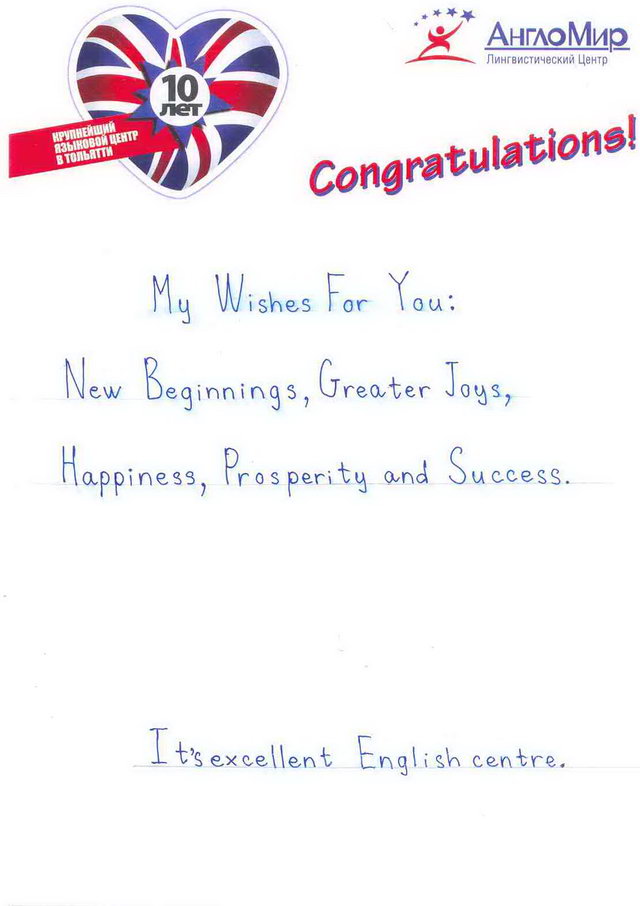 10
лет
КРУПНЕЙШИЙ
ЯЗЫКОВОЙ ЦЕНТР
В ТОЛЬЯТТИ
АнглоМир
Лингвистический Центр
Congratulations!
My Wishes For You:
New Beginnings, Greater Joys,
Happiness, Prosperity and Success.
It's excellent English centre.